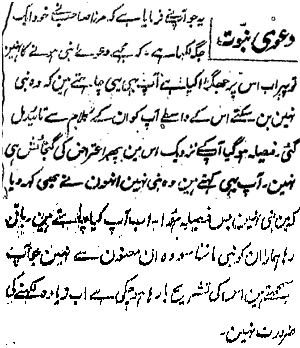 دعویٰ نبوت:
یہ جو آپنے فرمایا ہے کہ مرزا صاحب نے خود ایک
جگہ لکھا ہے۔ کہ مجھے دعوے نبی ہونے کا نہین
تو پہر اب اس پر جھگڑا کیا ہے آپ یہی چاہتے ہین کہ وہ نبی
نہین بن سکتے اس کے واسطے آپ کو ان کے کلام سے تائید مل
گئی۔ فیصلہ ہو گیا آپ کے نزدیک اس مین پھر اعتراض کی گنجائش ہی
نہین۔ آپ یہی کہتے ہین وہ نبی نہین انھون نے بھی کہہ دیا
کہ مین نبی نہین بس فیصلہ ہوا۔ اب آپ کیا چاہتے ہین باقی
رہا ہمارا ان کو نبی ماننا سو وہ ان معنون سے نہین جو آپ
سمجھتے ہین اس کی تشریح بارہا ہو چکی ہے اب زیادہ لکھنے کی
ضرورت نہین۔